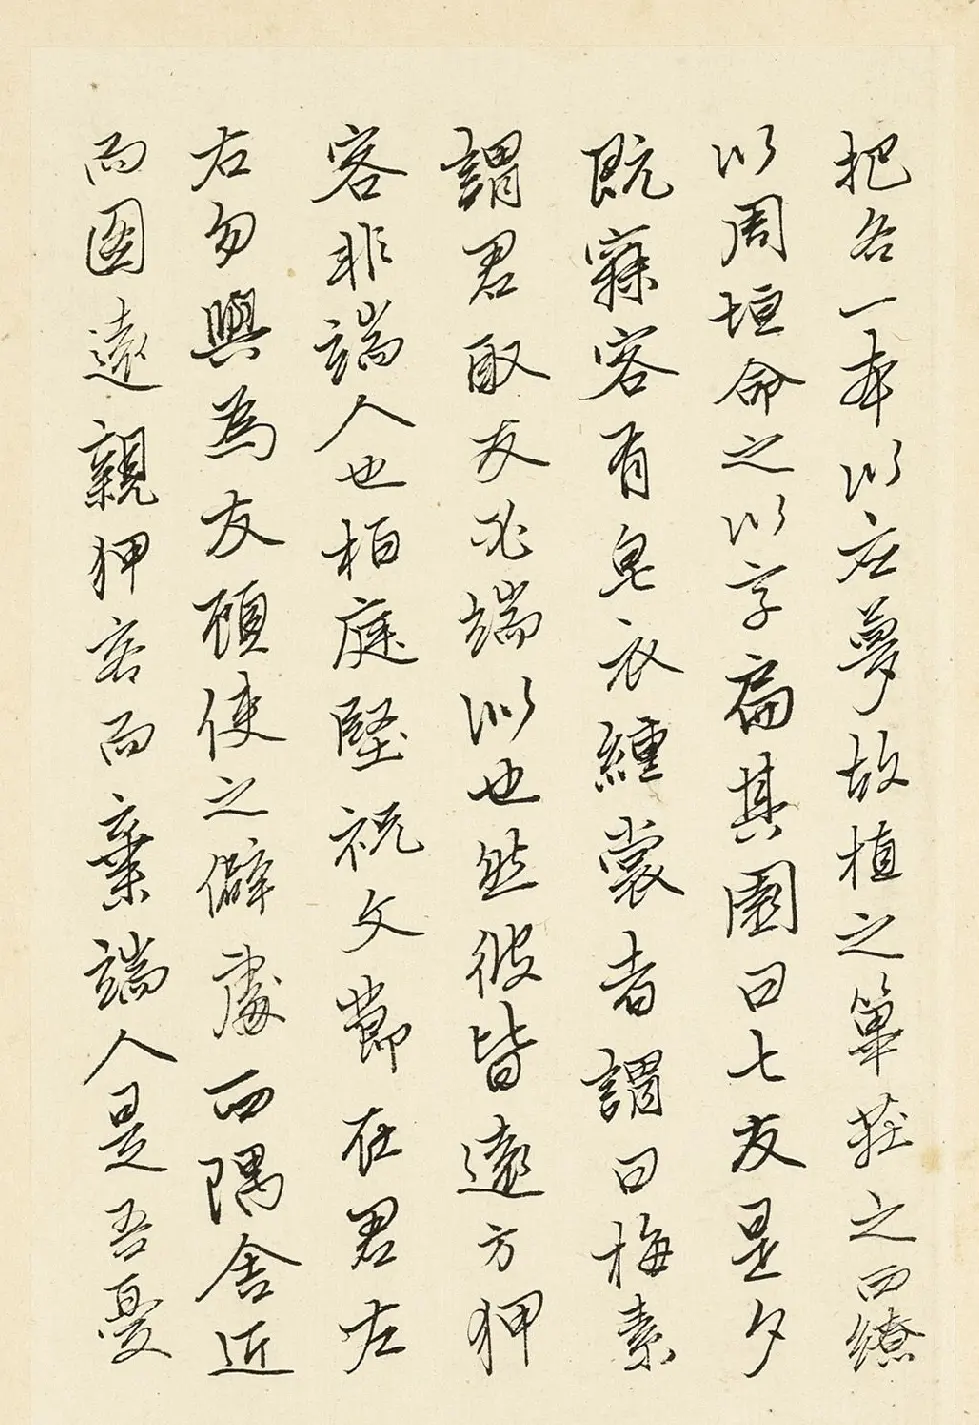 把各一本以应夢故植之草莊之西繚
以周垣命之以字扁其園曰七友是夕
既寐客有皂衣纁裳者謂曰梅素
謂君取友必端似也然彼皆遠方狎
客非端人也栢庭堅祝文節在君左
右勿與為友顧使之僻處西隅舍近
而圖遠親狎客而棄端人是吾憂